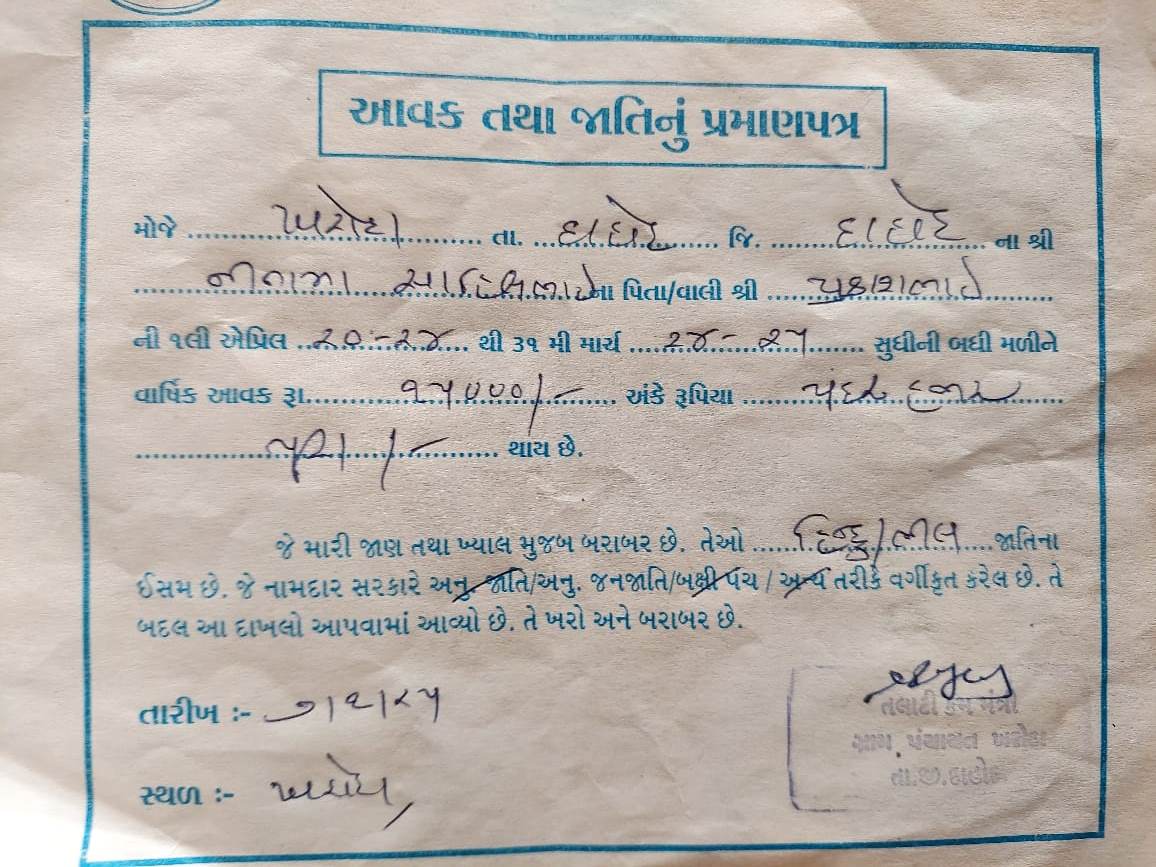 આવક તથા જાતિનું પ્રમાણપત્ર
મોજે ખરોદા તા. દાહોદ જિ. દાહોદ ના શ્રી
નીનામા ના પિતા/વાલી શ્રી પ્રકાશભાઈ
ની ૧લી એપ્રિલ ૨૦-૨૪ થી ૩૧ મી માર્ચ ૨૪-૨૫ સુધીની બધી મળીને
વાર્ષિક આવક રૂા. ૧૫૦૦૦/- અંકે રૂપિયા પંદર હજાર
પુરા/- થાય છે.
જે મારી જાણ તથા ખ્યાલ મુજબ બરાબર છે. તેઓ હિન્દુ/ભીલ જાતિના
ઈસમ છે. જે નામદાર સરકારે અનુ જાતિ/અનુ. જનજાતિ/બક્ષી પંચ / અન્ય તરીકે વર્ગીકૃત કરેલ છે. તે
બદલ આ દાખલો આપવામાં આવ્યો છે. તે ખરો અને બરાબર છે.
તારીખ :- ૭/૧/૨૫
સ્થળ :- ખરોદા
તલાટી કમ મંત્રી
ગ્રામ પંચાયત ખરોદા
તા.જી.દાહોદ